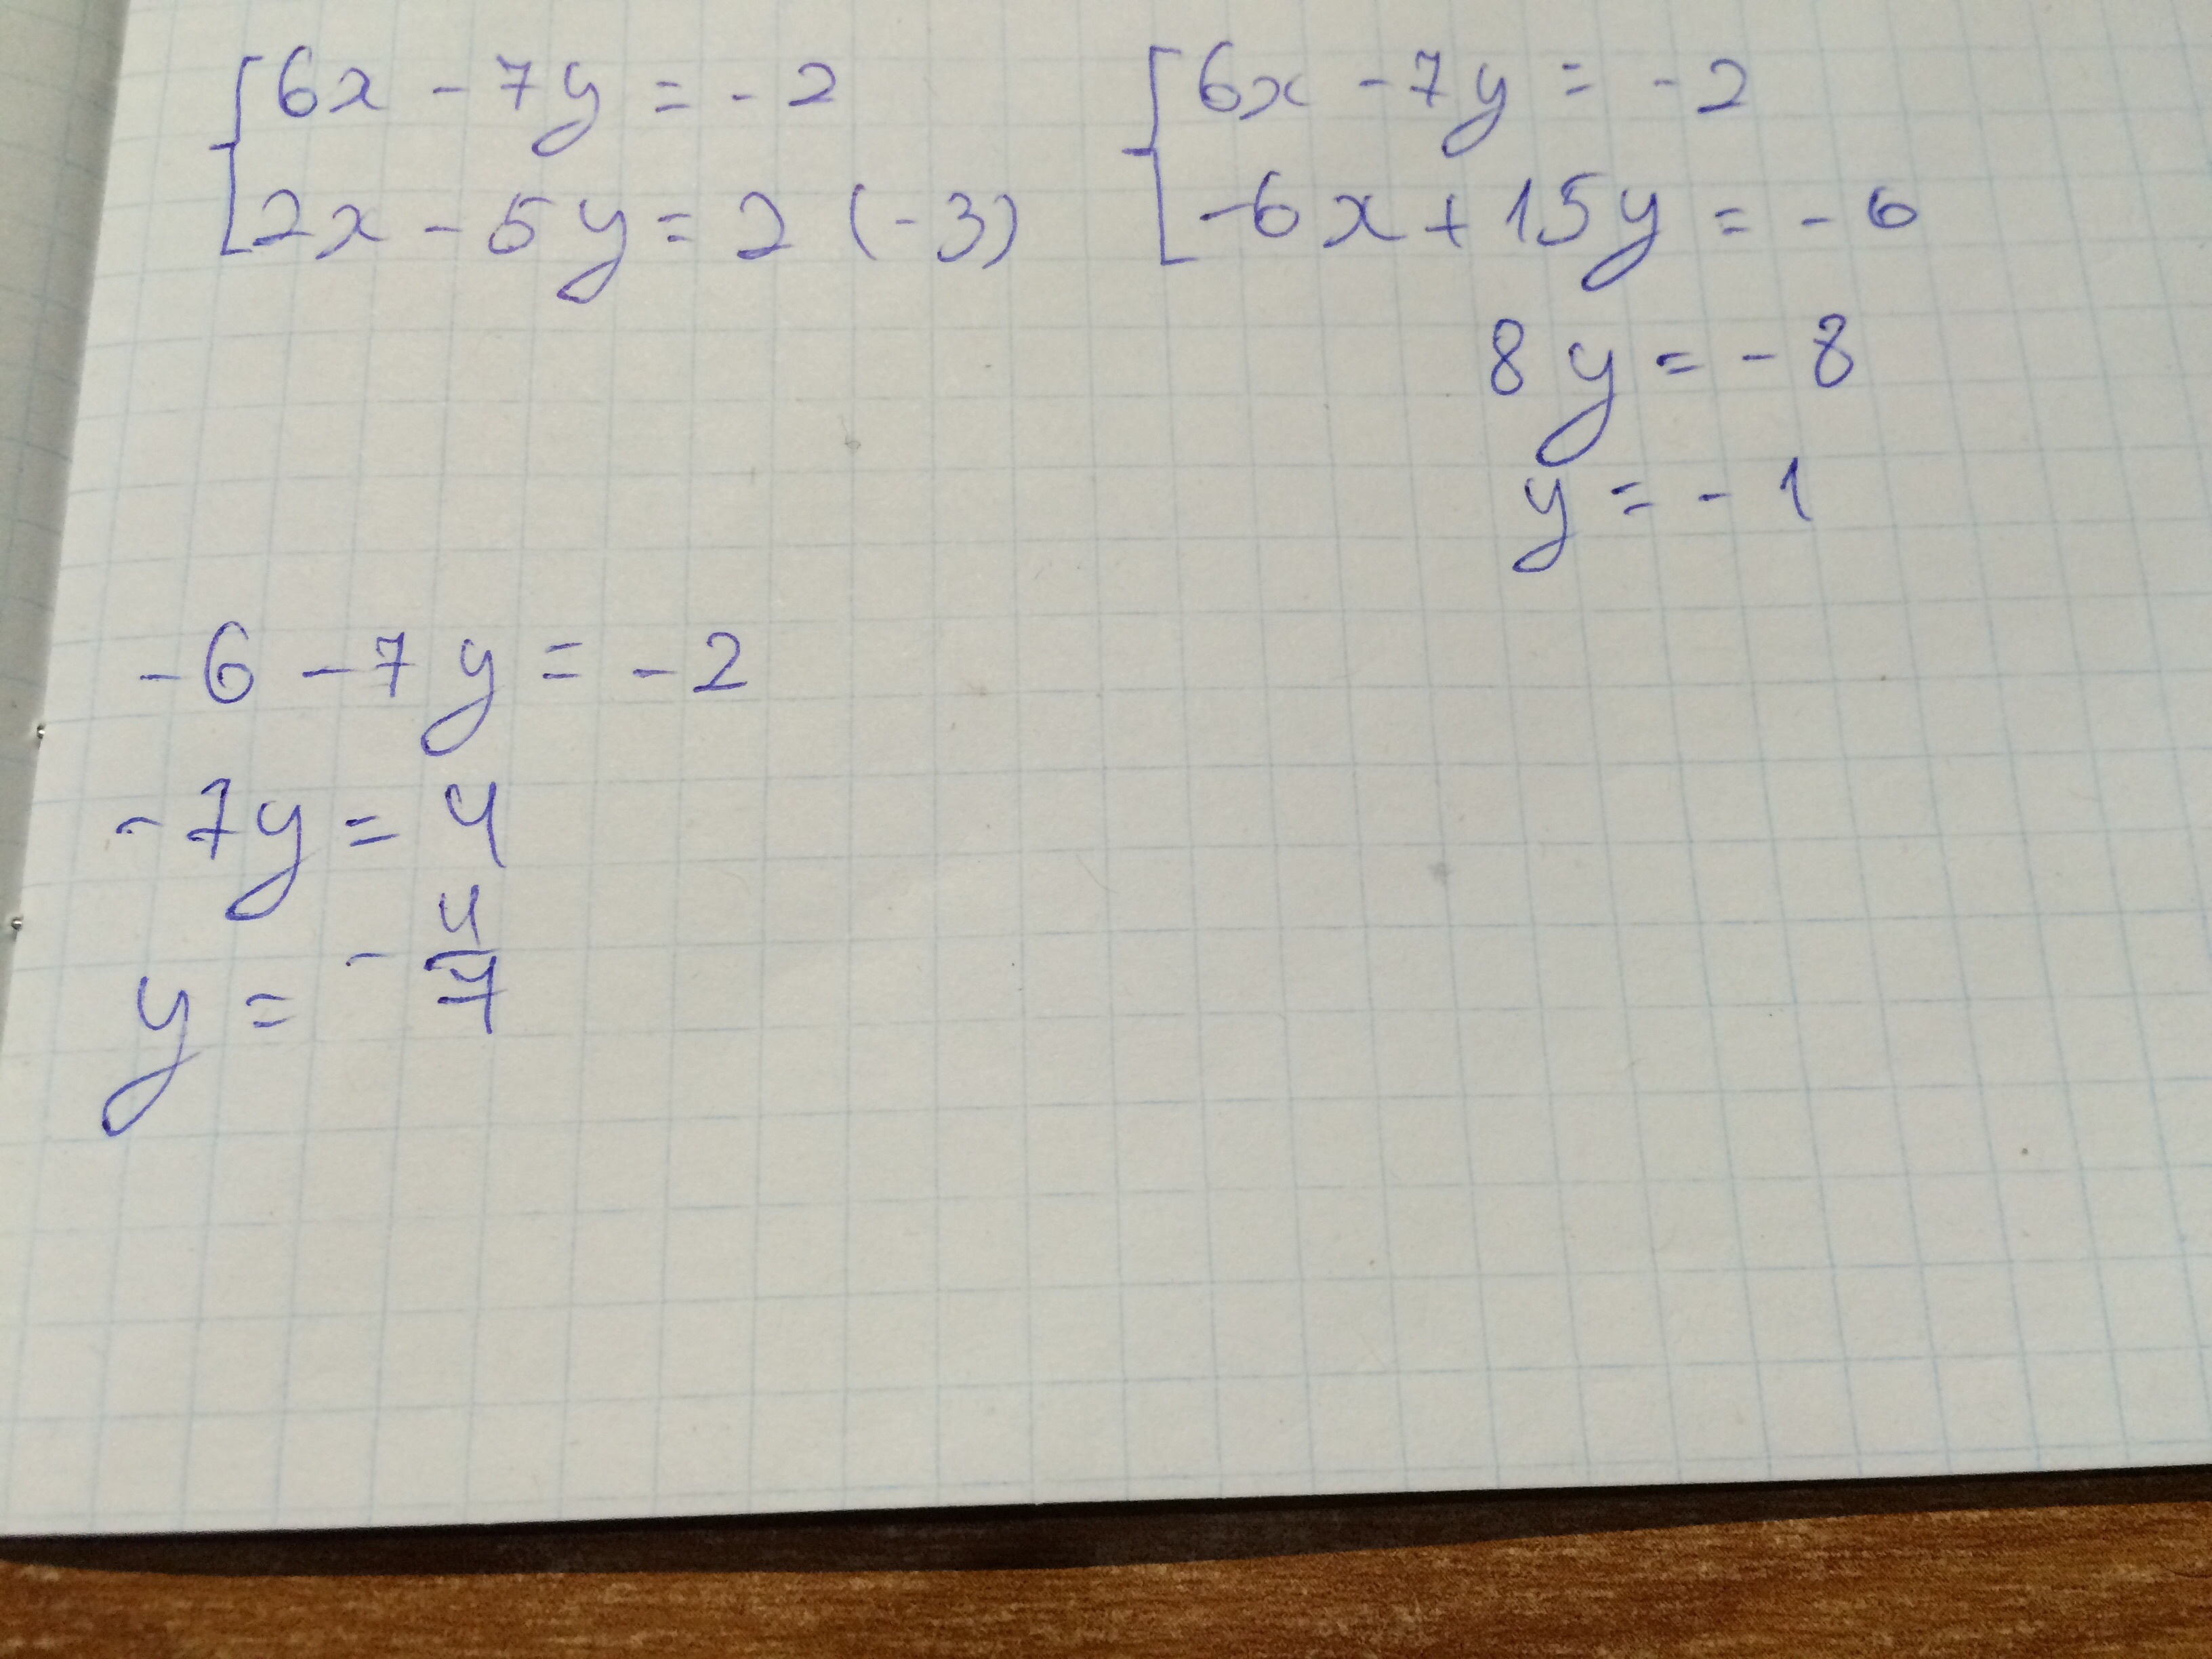 {6x - 7y = - 2
2x - 5y = 2 (-3)
{6x - 7y = - 2
-6x + 15y = - 6
8y = - 8
y = - 1
-6 - 7y = - 2
-7y = 4
y = - 4/7